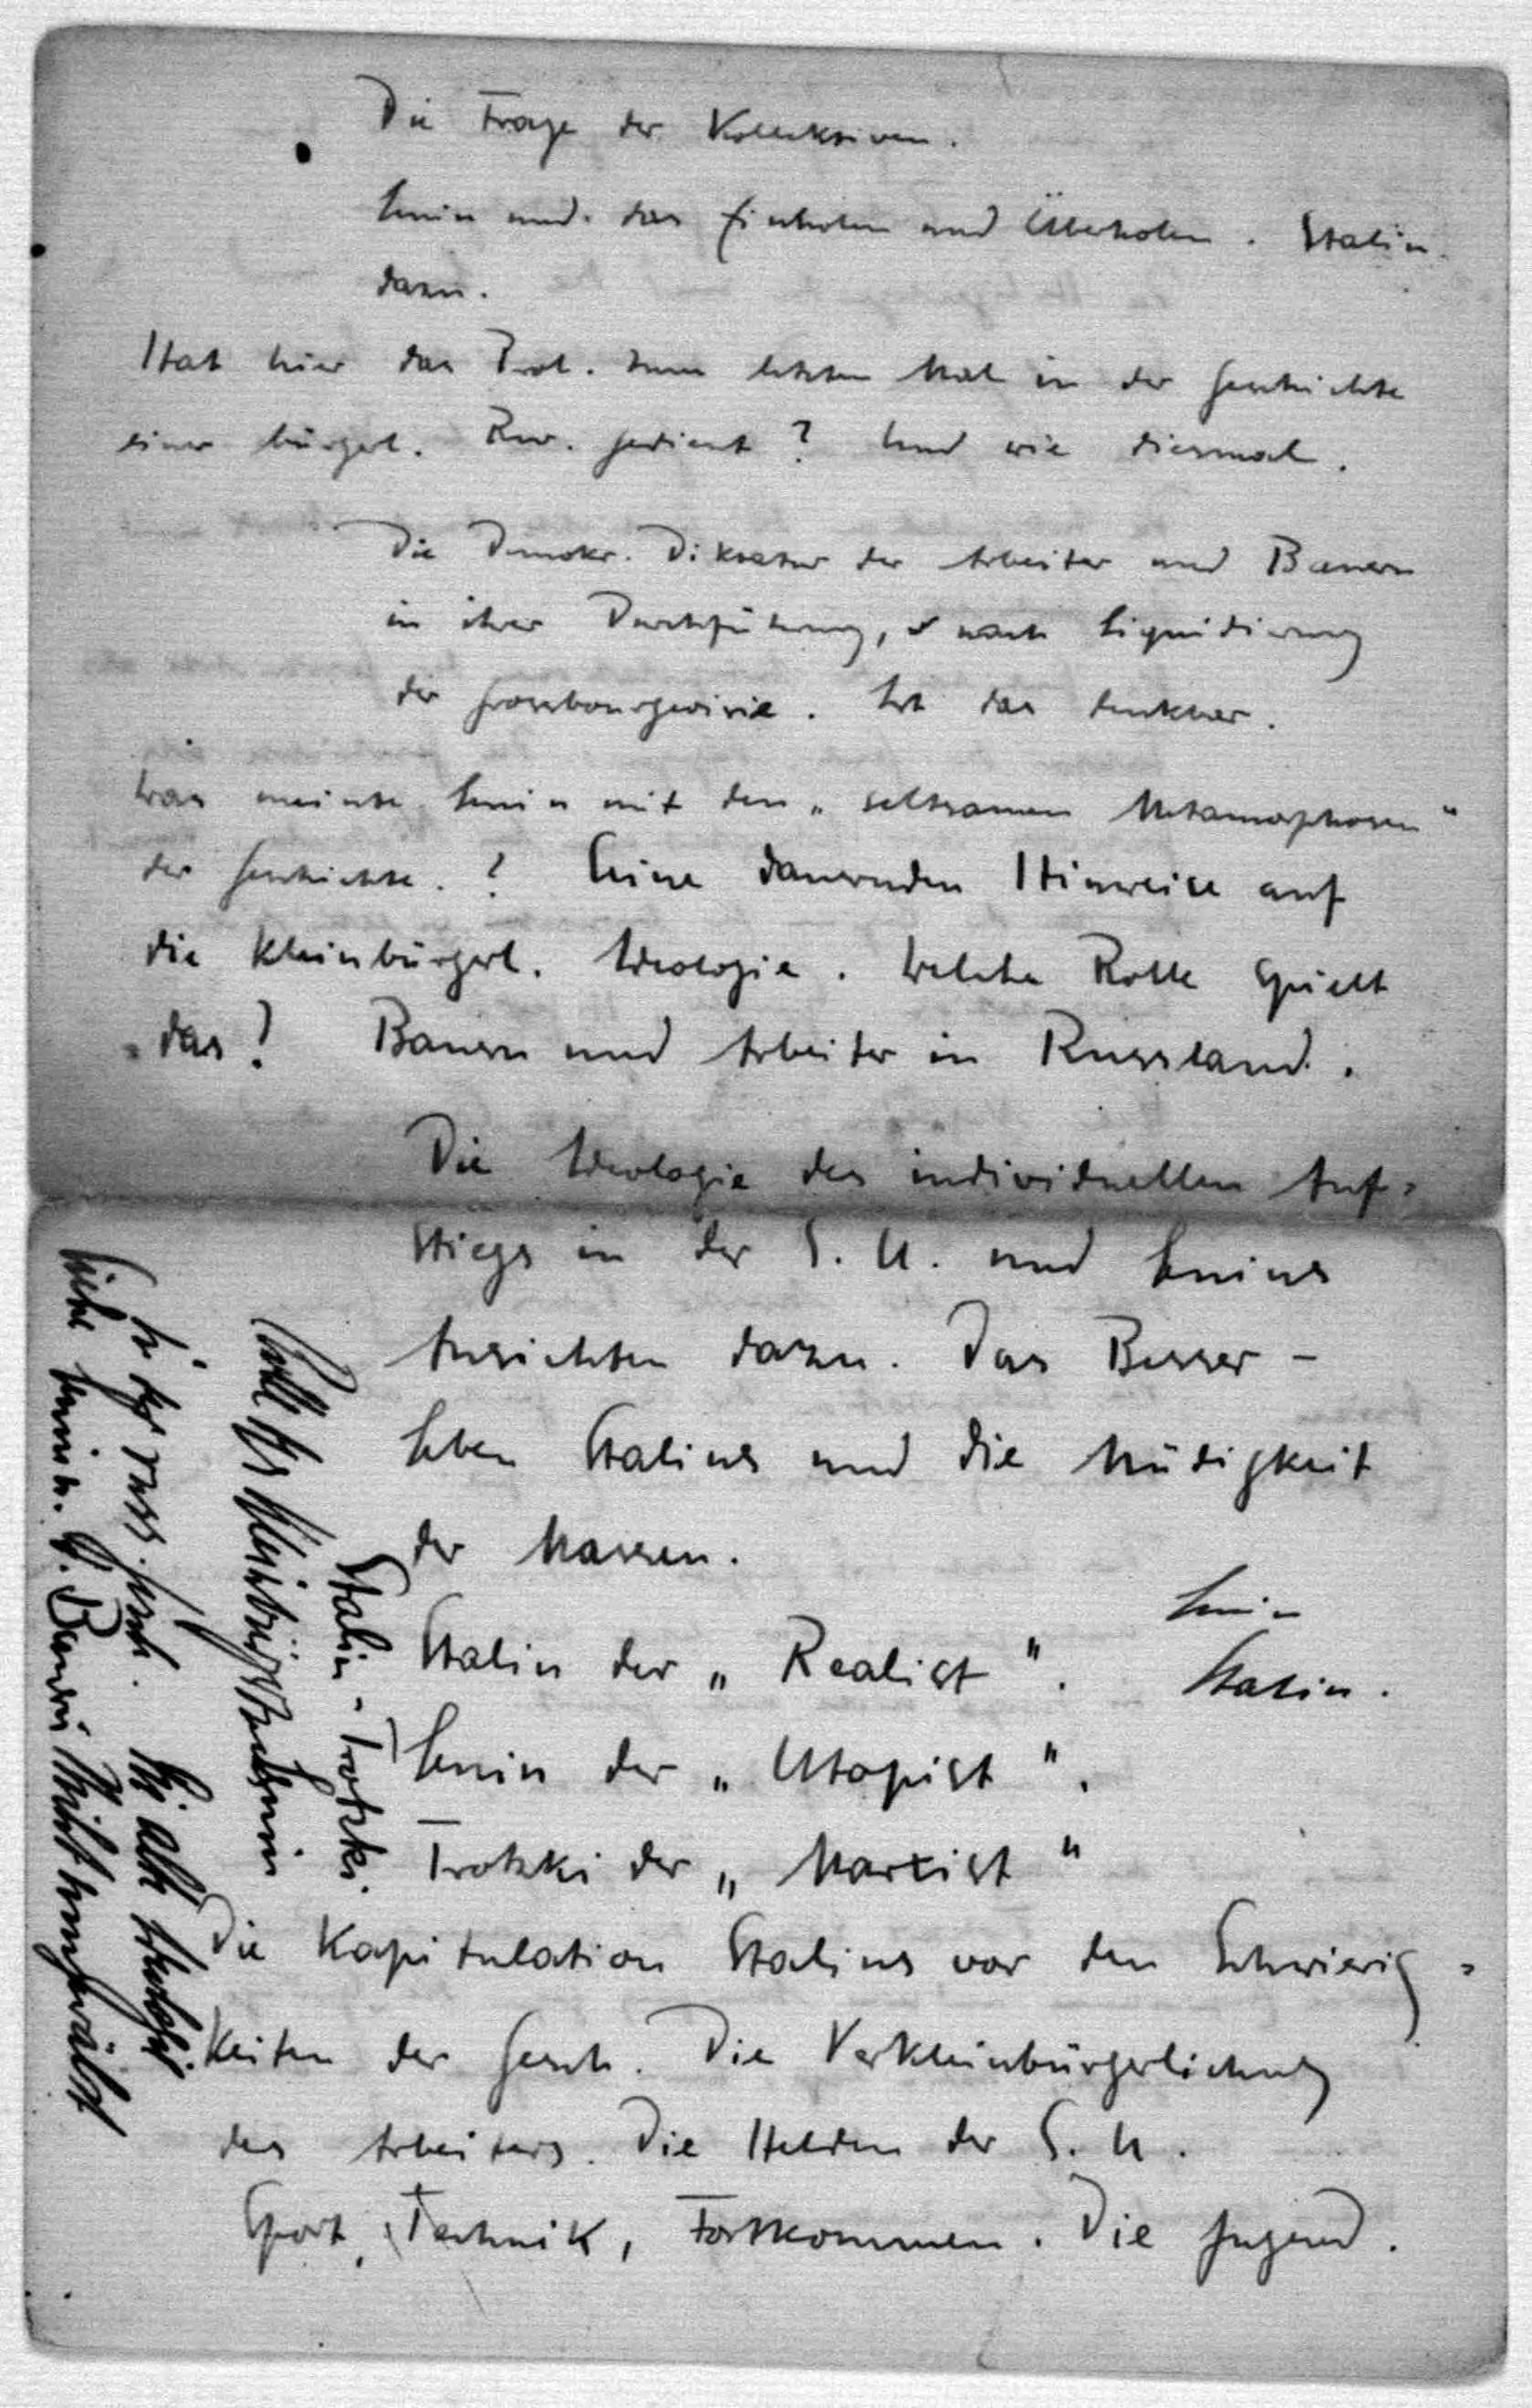 Die Frage der Kollektiven.
Lenin und das Einholen und Überholen. Stalin
dazu.
Hat hier das Prol. zum letzten Mal in der Geschichte
einer bürgerl. Rev. gedient? Und wie diesmal.
Die Demokr. Diktatur der Arbeiter und Bauern
in ihrer Durchführung, nach Liquidierung
der Grossbourgeoisie. Ist das denkbar.
Was meinte Lenin mit den „seltsamen Metamorphosen"
der Geschichte.? Seine dauernden Hinweise auf
die kleinbürgerl. Ideologie. Welche Rolle spielt
das? Bauern und Arbeiter in Russland.
Die Ideologie des individuellen Auf=
stiegs in der S.U. und Lenins
Ansichten dazu. Das Besser-
leben Stalins und die Müdigkeit
der Massen.
Stalin der „Realist".
Lenin
Stalin.
Lenin der „Utopist".
Trotzki der „Marxist"
Die Kapitulation Stalins vor den Schwierig=
keiten der Gesch. Die Verkleinbürgerlichung
des Arbeiters. Die Helden der S.U.
Sport, Technik, Fortkommen. Die Jugend.
Stalin - Trotzki.
Rolle des Kleinbürgertums
in der russ. Gesch. Die alte Ideologie
siehe Lenin